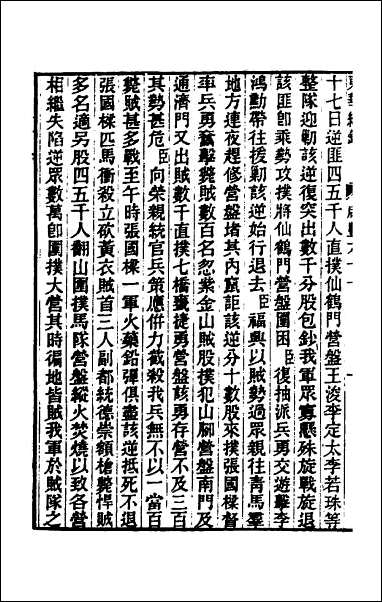 十七日逆匪四五千人直撲仙鶴門營盤王浚李定太李若珠等
整隊迎勦該逆復突出數千分股包鈔我軍眾寡懸殊旋戰旋退
該匪卽乘勢攻撲將仙鶴門營盤圍困臣復抽派兵勇交遊擊李
鴻勳帶往援勦該逆始行退去臣福興以賊勢過眾親往青馬羣
地方連夜趕修營盤堵其內竄詎該逆分十數股來撲張國樑督
率兵勇奮擊斃賊數百名忽紫金山賊股撲犯山腳營盤南門及
通濟門又出賊數千直撲七橋甕捷勇營盤該勇存營不及三百
其勢甚危臣向榮親統官兵策應併力截殺我兵無不以一當百
斃賊甚多戰至午時張國樑一軍火藥鉛彈俱盡該逆抵死不退
張國樑匹馬衝殺立砍黃衣賊首三人副都統德崇額槍斃悍賊
多名適另股四五千人翻山圍撲馬隊營盤縱火焚燒以致各營
相繼失陷逆眾數萬卽圍撲大營其時徧地皆賊我軍於賊隊之